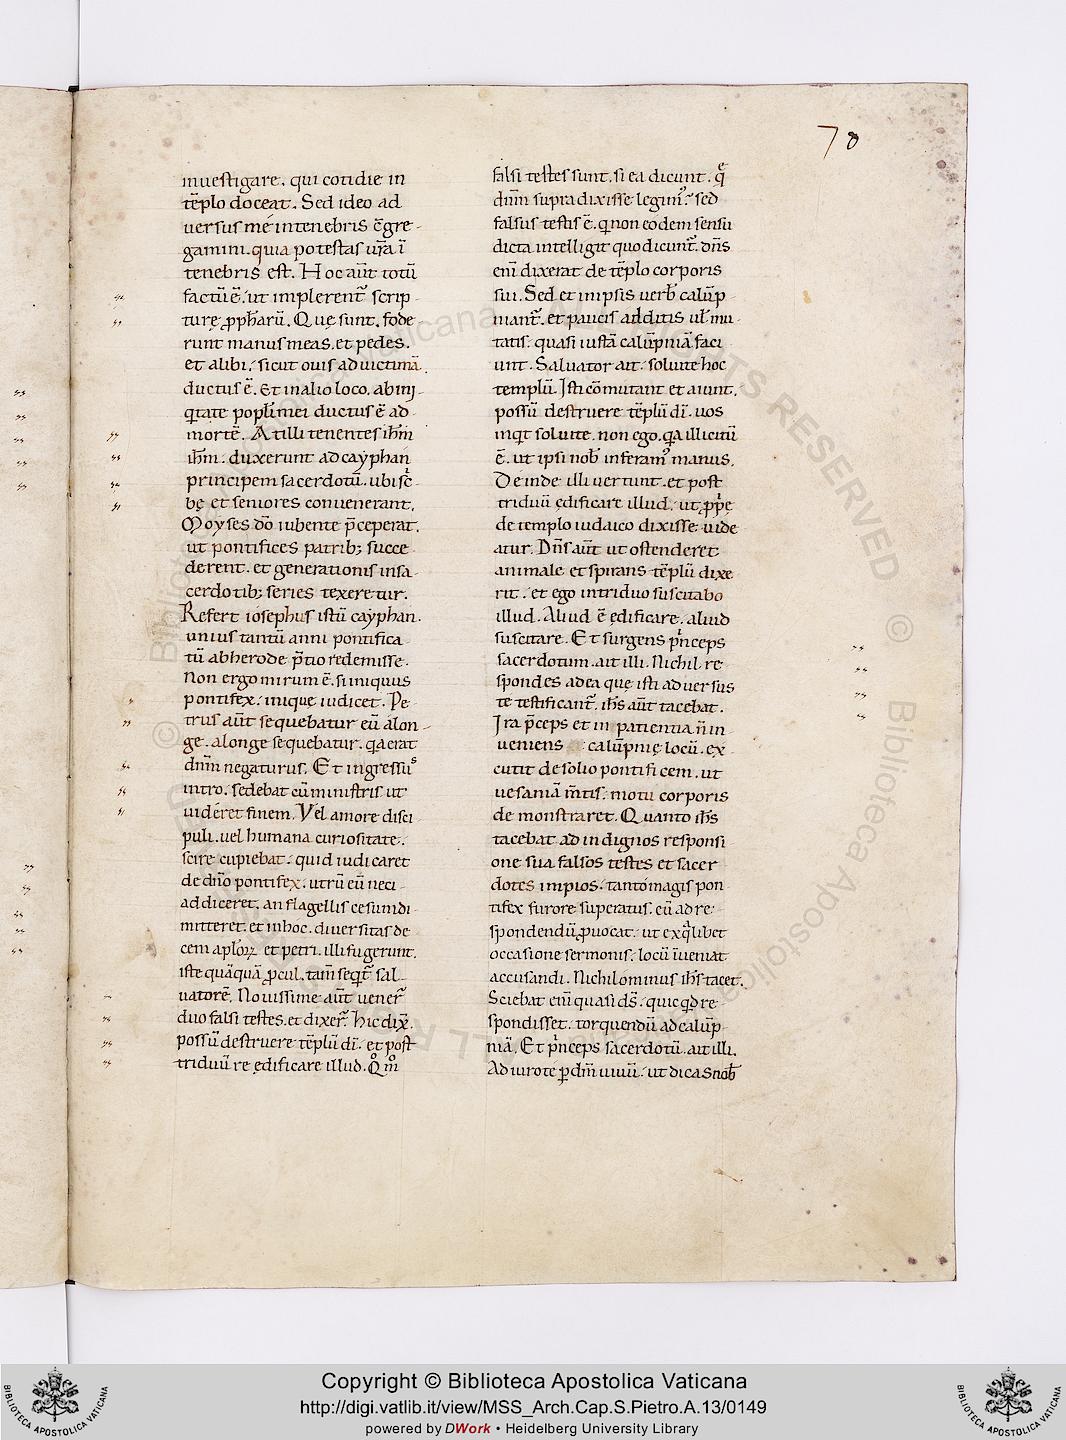 70
inuestigare. qui cotidie in
tēplo doceat. Sed ideo ad
uersus me intenebris c̄gre-
gamini. quia potestas ur̄a ī
tenebris est. Hoc aūt totū
factū ē. ut implerent̄ scrip-
turę ꝓph̄arū. Quę sunt. fode
runt manus meas. et pedes.
et alibi. sicut ouis ad uictimā
ductus ē. Et in alio loco. ab ini-
q̇tate popl̄i mei ductus ē ad
mortē. At illi tenentes ih̄m
ih̄m. duxerunt ad cayphan
principem sacerdotū. ubi sc̄
bę et seniores conuenerant.
Moyses dō iubente p̄ceperat.
ut pontifices patrib; succe
derent. et generationis in sa-
cerdotib; series texeretur.
Refert iosephus istū cayphan.
unius tantū anni pontifica
tū ab herode p̄tio redemisse.
Non ergo mirum ē. si iniquus
pontifex. inique iudicet. Pe-
trus aūt sequebatur eū a lon-
ge. a longe sequebatur. q̇a erat
dn̄m negaturus. Et ingressus
intro. sedebat cū ministris ut
uideret finem. Vel amore disci
puli. uel humana curiositate.
scire cupiebat. quid iudicaret
de dn̄o pontifex. utrū eū neci
addiceret. an flagellis cesum di-
mitteret. et in hoc. diuersitas de
cem apl̄oꝝ et petri. illi fugerunt.
iste quāquā ꝓcul. tam̄ seq̇t̄ sal-
uatorē. Nouissime aūt uener̄
duo falsi testes. et dixer̄. hic dix̄.
possū destruere tēplū dī. et post
triduū reędificare illud. Qͦmͦ
falsi testes sunt. si ea dicunt. q̄
dn̄m supra dixisse legim᾽. sed
falsus testis ē. q̇ non eodem sensu
dicta intelligit quo dicunt̄. dn̄s
eni dixerat de tēplo corporis
sui. Sed et in ipsis uerb̄ calūp
niant̄. et paucis additis ul̄ mu-
tatis. quasi iustā calūpniā faci
unt. Saluator ait. soluite hoc
templū. Isti cōmutant et aiunt.
possū destruere tēplū dī. uos
inq̇t soluite. non ego. q̇a illicitū
ē. ut ipsi nob̄ inferam᾽ manus.
Deinde illi uertunt. et post
triduū ędificare illud. ut ꝓp̄ę
de templo iudaico dixisse uide
atur. Dn̄s aūt ut ostenderet
animale et spirans tēplū dixe
rit. et ego in triduo suscitabo
illud. Aliud ē ędificare. aliud
suscitare. Et surgens p̄nceps
sacerdotum. ait illi. Nichil re
spondes ad ea quę isti aduersus
te testificant̄. ih̄s aūt tacebat.
Ira p̄ceps et inpatientia n̄ in
ueniens calūpnię locū. ex
cutit de solio pontificem. ut
uesaniā m̄tis. motu corporis
demonstraret. Quanto ih̄s
tacebat ad indignos responsi
one sua falsos testes et sacer
dotes impios. tanto magis pon
tifex furore superatus. eū ad re
spondendū ꝓuocat. ut ex q̇libet
occasione sermonis. locū īueniat
accusandi. Nichilominus ih̄s tacet.
Sciebat eni quasi ds̄. quicq̇d re-
spondisset. torquendū ad calūp-
niā. Et p̄nceps sacerdotū. ait illi.
Adiuro te ꝑ dm̄ uiuū. ut dicas nob̄
© Biblioteca Apostolica Vaticana ALL RIGHTS RESERVED
Copyright © Biblioteca Apostolica Vaticana
http://digi.vatlib.it/view/MSS_Arch.Cap.S.Pietro.A.13/0149
powered by DWork • Heidelberg University Library
BIBLIOTECA APOSTOLICA VATICANA
BIBLIOTECA APOSTOLICA VATICANA